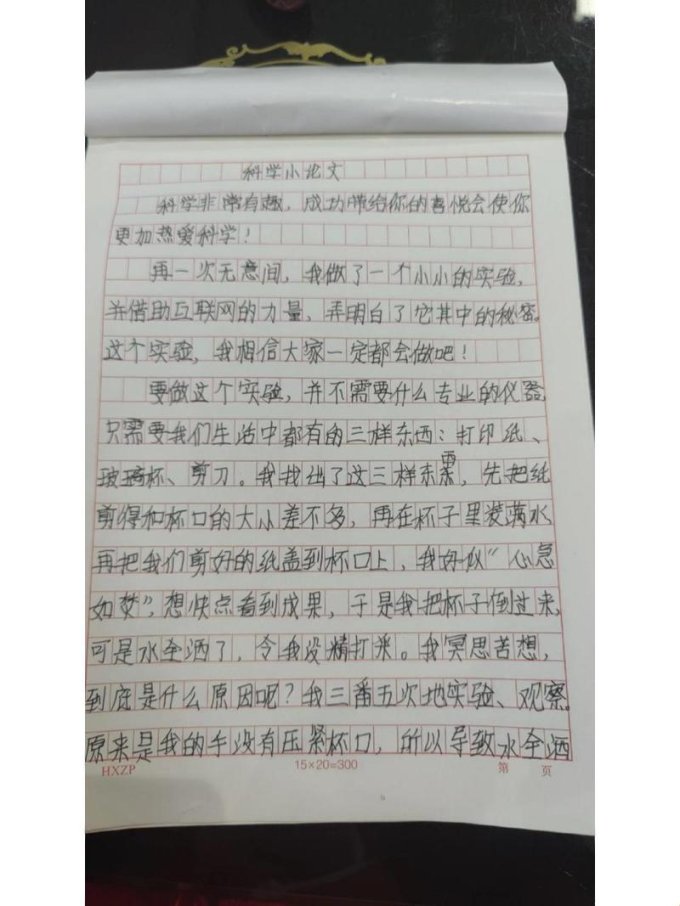 科学小论文
科学非常有趣，成功带给你的喜悦会使你
更加热爱科学！
再一次无意间，我做了一个小小的实验，
并借助互联网的力量，弄明白了它其中的秘密。
这个实验，我相信大家一定都会做吧！
要做这个实验，并不需要什么专业的仪器
只需要我们生活中都有的三样东西：打印纸、
玻璃杯、剪刀。我找出了这三样东西，先把纸
剪得和杯口的大小差不多，再在杯子里装满水
再把我们剪好的纸盖到杯口上，我好似“心急
如焚”，想快点看到成果，于是我把杯子倒过来，
可是水全洒了，令我没精打采。我冥思苦想，
到底是什么原因呢？我三番五次地实验、观察。
原来是我的手没有压紧杯口，所以导致水全洒
HXZP 15×20=300 第 页